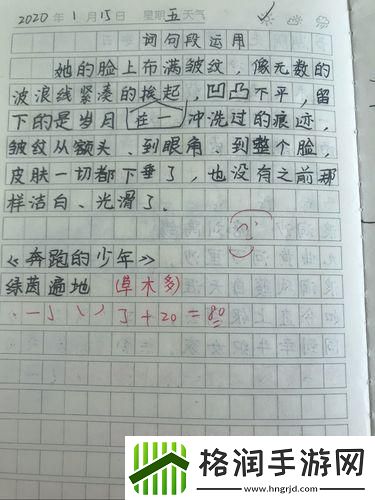 2020 年 1 月 15 日 星期 五 天气
词句段运用
她的脸上布满皱纹，像无数的
波浪线紧凑的挨起，凹凸不平，留
下的是岁月在一冲洗过的痕迹，
皱纹从额头、到眼角、到整个脸，
皮肤一切都下垂了，也没有之前那
样洁白、光滑了。
《奔跑的少年》
绿茵遍地 (草木多)
了+20=80
格润手游网
www.hngrjd.com